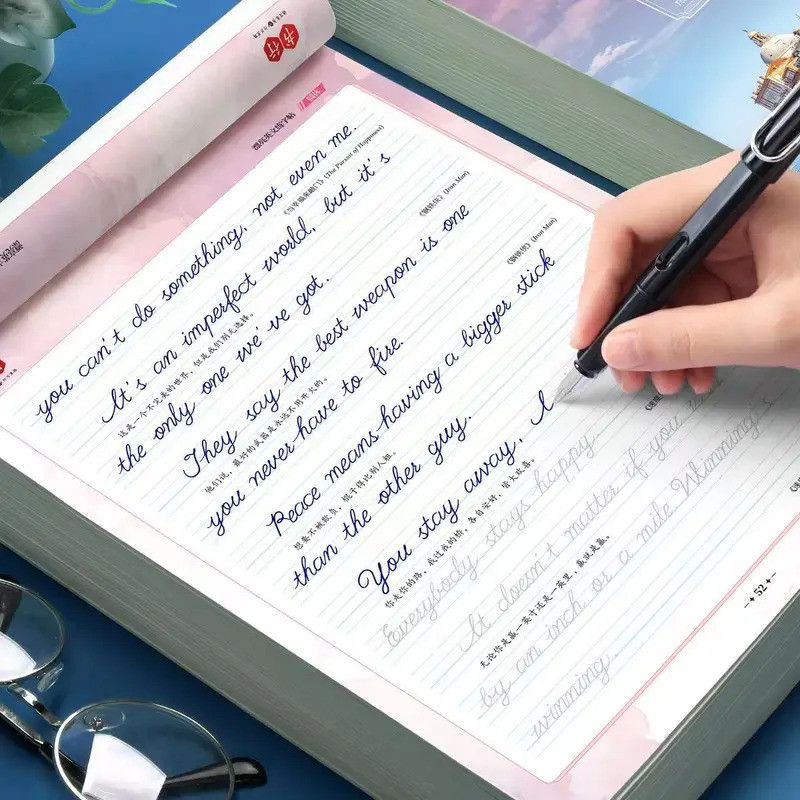 漂亮英文练字帖
you can't do something, not even me.
《当幸福来敲门》(The Pursuit of Happiness)
It's an imperfect world, but it's
这是一个不完美的世界，但是我们别无选择。 《钢铁侠》(Iron Man)
the only one we've got.
They say the best weapon is one
他们说，最好的武器是永远不用开火的。 《钢铁侠》(Iron Man)
you never have to fire.
Peace means having a bigger stick
想要不被欺负，棍子得比别人粗。
than the other guy.
You stay away, I
你走你的路，我过我的桥，各自安好，皆大欢喜。
Everybody stays happy.
It doesn't matter if you
无论你是赢一英寸还是一英里，赢就是赢。
by an inch or a mile Winning's
winning.
52